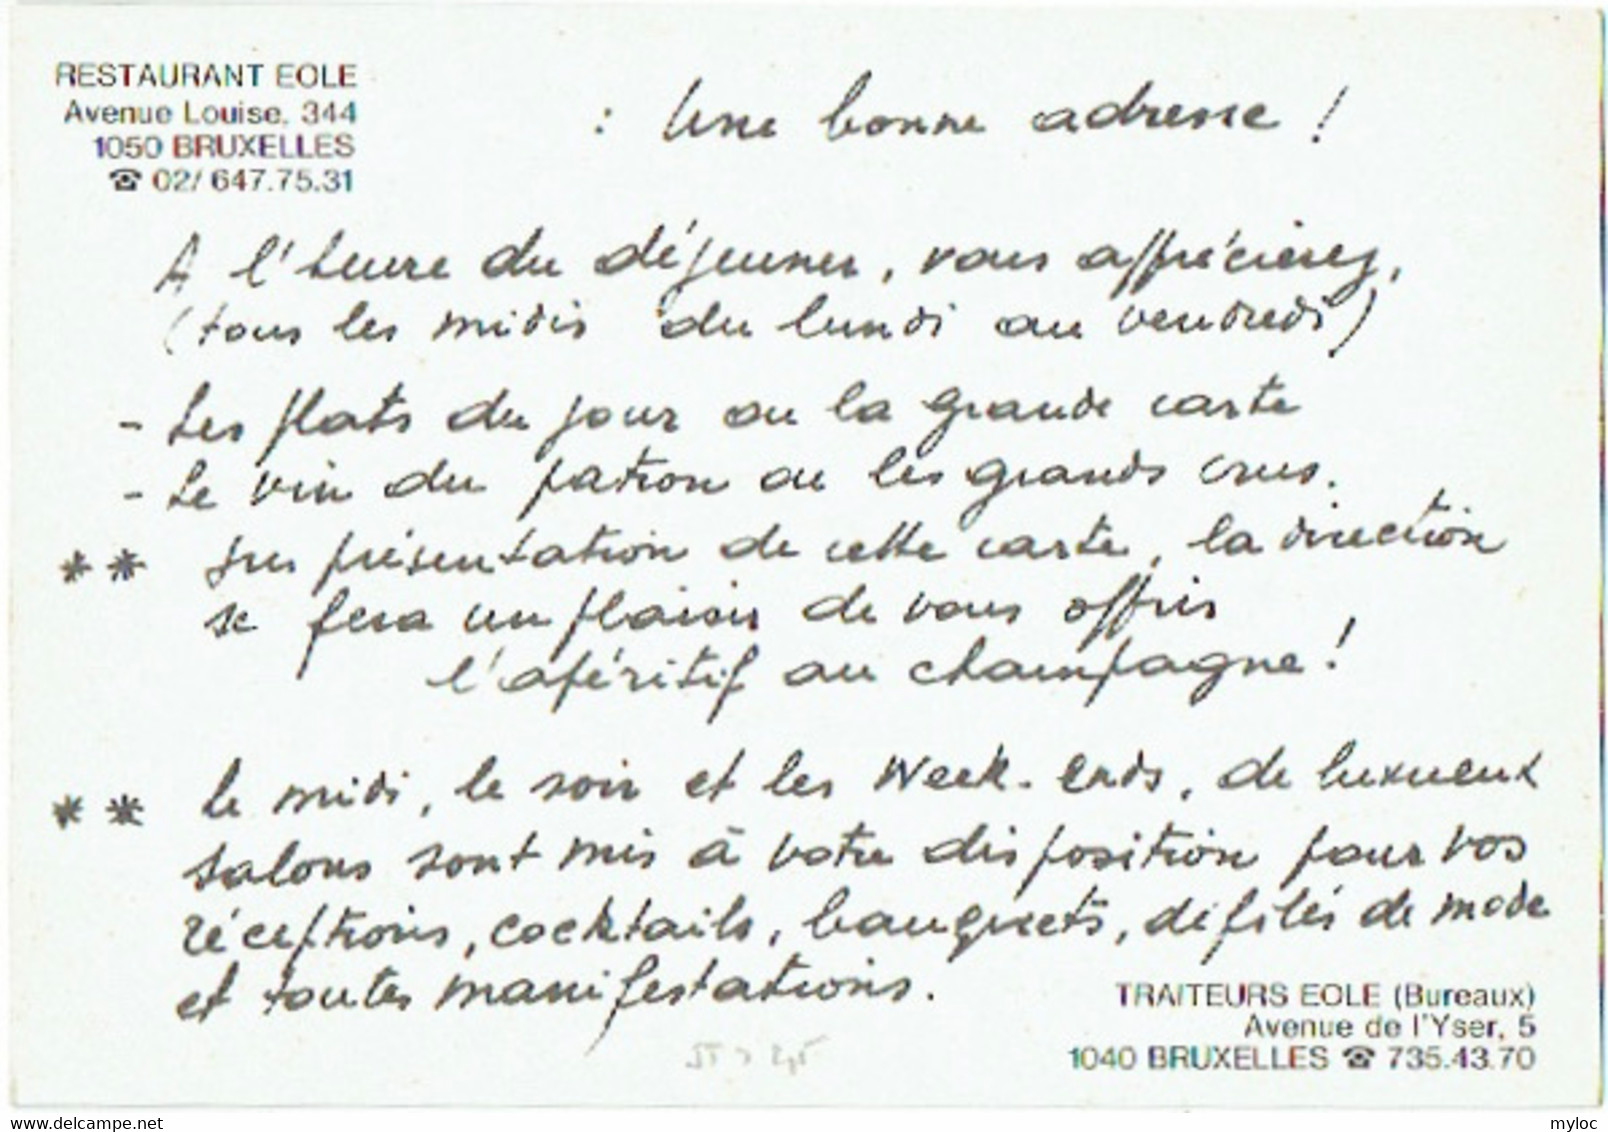 RESTAURANT EOLE
Avenue Louise, 344
1050 BRUXELLES
☎ 02/ 647.75.31
: Une bonne adresse !
A l'heure du déjeuner, vous apprécierez,
(tous les midis du lundi au vendredi)
- Les plats du jour ou la grande carte
- Le vin du patron ou les grands crus.
** Sur présentation de cette carte, la direction
se fera un plaisir de vous offrir
l'apéritif au champagne !
** Le midi, le soir et les week-ends, de luxueux
salons sont mis à votre disposition pour vos
réceptions, cocktails, banquets, défilés de mode
et toutes manifestations.
TRAITEURS EOLE (Bureaux)
Avenue de l'Yser, 5
1040 BRUXELLES ☎ 735.43.70
delcampe.net
myloc